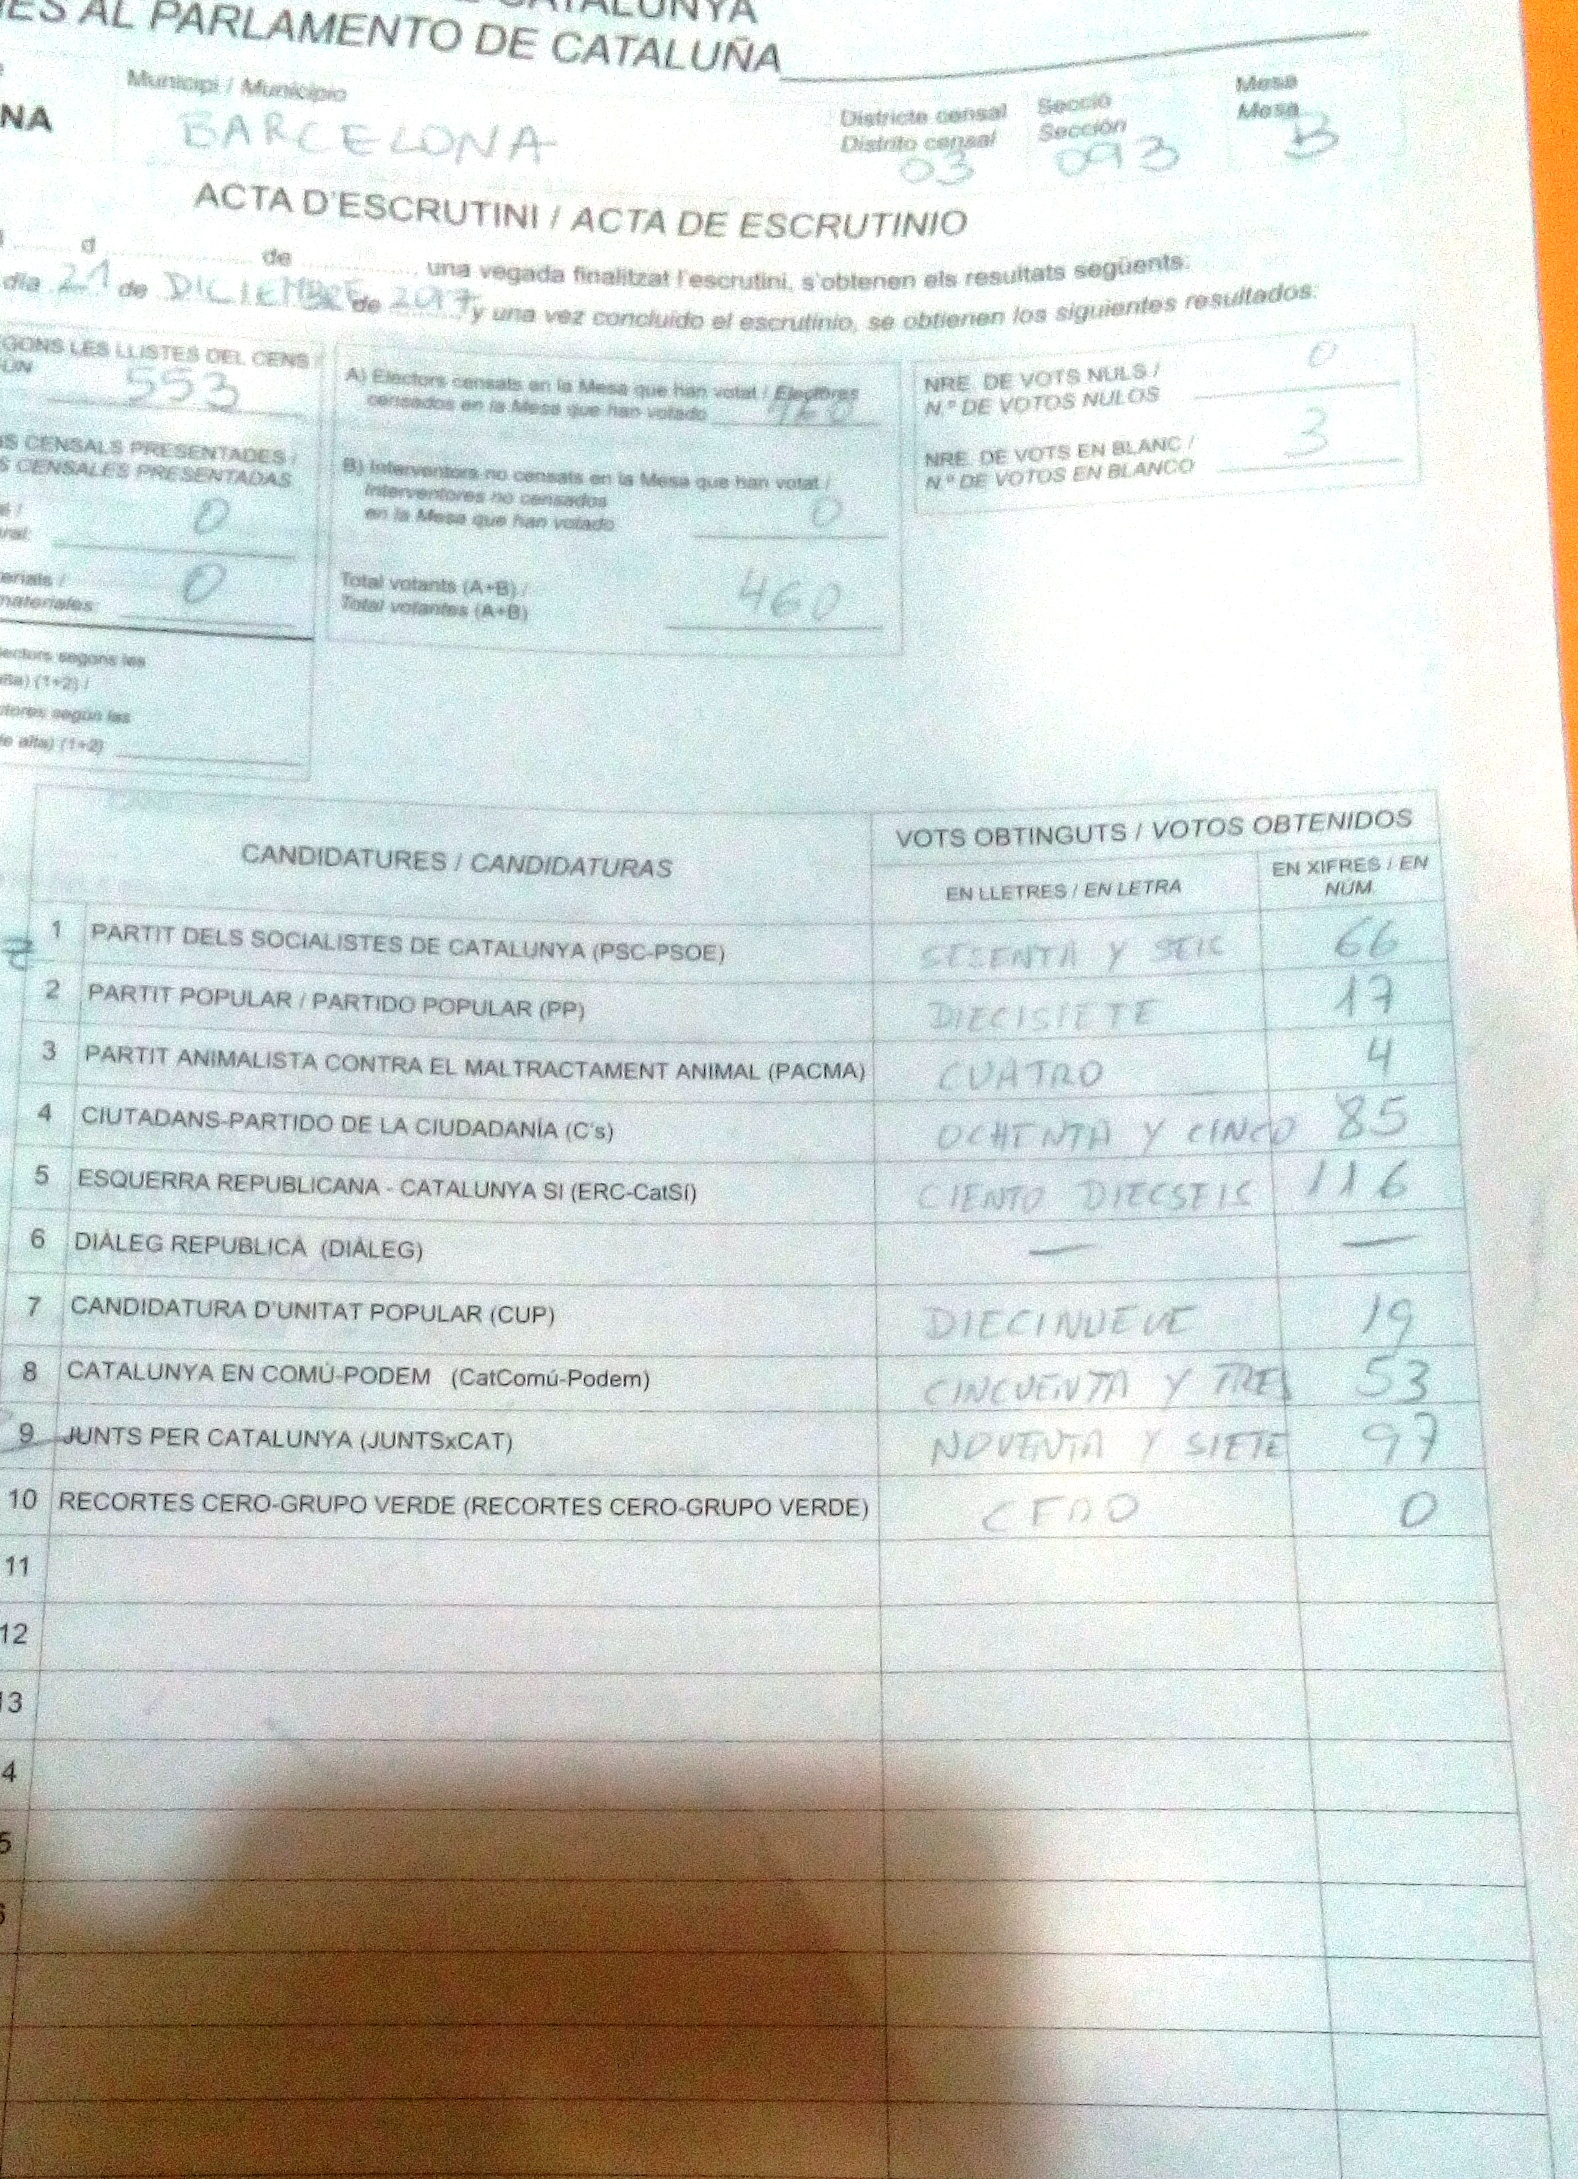 CATALUNYA
ES AL PARLAMENTO DE CATALUÑA
Municipi / Municipio
NA BARCELONA
Districte censal Secció Mesa
Distrito censal Sección Mesa
03 093 B
ACTA D'ESCRUTINI / ACTA DE ESCRUTINIO
d de , una vegada finalitzat l'escrutini, s'obtenen els resultats següents:
día 21 de DICIEMBRE de 2017 y una vez concluido el escrutinio, se obtienen los siguientes resultados:
GONS LES LLISTES DEL CENS /
ÚN
553
S CENSALS PRESENTADES /
S CENSALES PRESENTADAS
0
erials /
materiales: 0
ectors segons les
(1+2) /
ctores según las
e alta) (1+2)
A) Electors censats en la Mesa que han votat / Electores
censados en la Mesa que han votado 460
B) Interventors no censats en la Mesa que han votat /
Interventores no censados
en la Mesa que han votado 0
Total votants (A+B) /
Total votantes (A+B) 460
NRE. DE VOTS NULS /
N.º DE VOTOS NULOS 0
NRE. DE VOTS EN BLANC /
N.º DE VOTOS EN BLANCO 3
CANDIDATURES / CANDIDATURAS
VOTS OBTINGUTS / VOTOS OBTENIDOS
EN LLETRES / EN LETRA
EN XIFRES / EN
NÚM.
1 PARTIT DELS SOCIALISTES DE CATALUNYA (PSC-PSOE) SESENTA Y SEIS 66
2 PARTIT POPULAR / PARTIDO POPULAR (PP) DIECISIETE 17
3 PARTIT ANIMALISTA CONTRA EL MALTRACTAMENT ANIMAL (PACMA) CUATRO 4
4 CIUTADANS-PARTIDO DE LA CIUDADANÍA (C's) OCHENTA Y CINCO 85
5 ESQUERRA REPUBLICANA - CATALUNYA SÍ (ERC-CatSí) CIENTO DIECSEIS 116
6 DIÀLEG REPUBLICÀ (DIÀLEG) — —
7 CANDIDATURA D'UNITAT POPULAR (CUP) DIECINUEVE 19
8 CATALUNYA EN COMÚ-PODEM (CatComú-Podem) CINCUENTA Y TRES 53
9 JUNTS PER CATALUNYA (JUNTSxCAT) NOVENTA Y SIETE 97
10 RECORTES CERO-GRUPO VERDE (RECORTES CERO-GRUPO VERDE) CERO 0
11
12
13
4
5